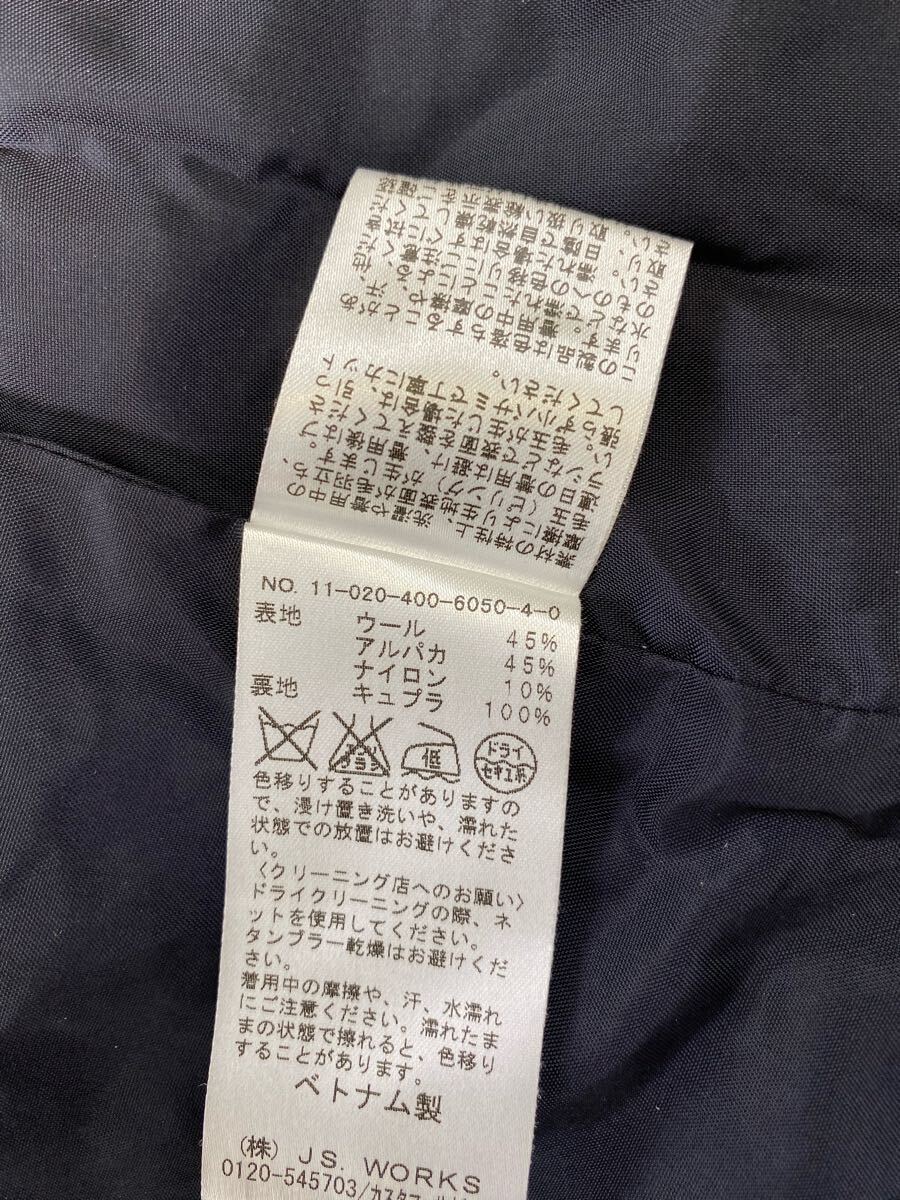 素材の特性上、洗濯や着用中の
摩擦により生地表面が毛羽立ち、
毛玉(ピリング)が生じます。
連日の着用は避け、着用後はブ
ラシなどで表面を整えてくださ
い。毛玉が生じた場合は、引っ
張らず小バサミで丁寧にカット
してください。
この製品は色落ちすることがあ
ります。着用中の摩擦や汗、
水などで濡れたことによる
NO. 11-020-400-6050-4-0
表地 ウール 45%
アルパカ 45%
ナイロン 10%
裏地 キュプラ 100%
エンソ
サラシ
低
ドライ
セキユ系
色移りすることがありますの
で、浸け置き洗いや、濡れた
状態での放置はお避けくださ
い。
〈クリーニング店へのお願い〉
ドライクリーニングの際、ネ
ットを使用してください。
タンブラー乾燥はお避けくだ
さい。
着用中の摩擦や、汗、水濡れ
にご注意ください。濡れたま
まの状態で擦れると、色移り
することがあります。
ベトナム製
(株) J.S. WORKS
0120-545703/カスタマー